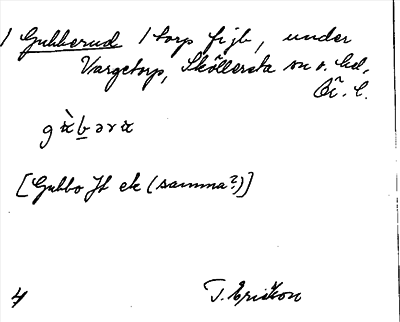 1 Gubberud 1 torp fr jb, under
Vargetorp, Sköllersta sn o. hd,
Ör. l.
gàbəra
[Gubbo Jt ek (samma?)]
4 T. Ericson